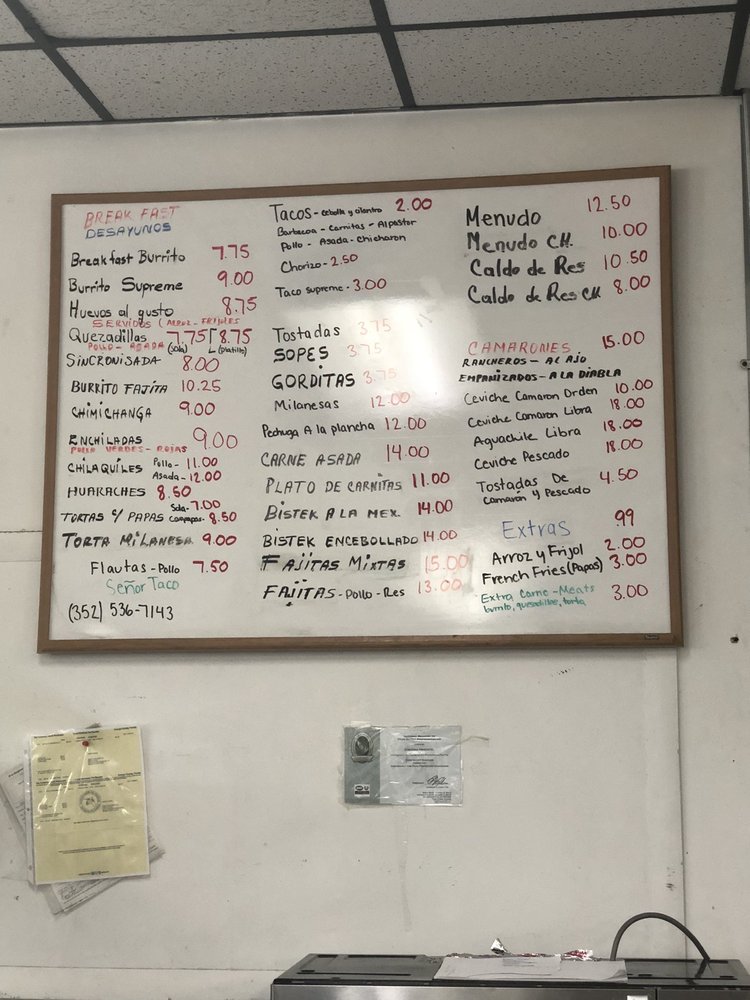 BREAK FAST
DESAYUNOS
Breakfast Burrito 7.75
Burrito Supreme 9.00
Huevos al gusto 8.75
SERVIDOS (ARROZ - FRIJOLES
Quezadillas 7.75 8.75
POLLO - ASADA (Sola) (Platillo)
SINCRONISADA 8.00
BURRITO FAJITA 10.25
CHIMICHANGA 9.00
ENCHILADAS 9.00
POLLO VERDES - ROJAS
CHILAQUILES Pollo - 11.00
Asada - 12.00
HUARACHES 8.50
Sola - 7.00
TORTAS Y PAPAS conpapas - 8.50
TORTA MILANESA 9.00
Flautas - Pollo 7.50
Señor Taco
(352) 536-7143
Tacos - cebolla y cilantro 2.00
Barbacoa - Carnitas - Alpastor
Pollo - Asada - Chicharon
Chorizo - 2.50
Taco supreme - 3.00
Tostadas 3.75
SOPES 3.75
GORDITAS 3.75
Milanesas 12.00
Pechuga A la plancha 12.00
CARNE ASADA 14.00
PLATO DE CARNITAS 11.00
BISTEK A LA MEX. 14.00
BISTEK ENCEBOLLADO 14.00
FAJITAS MIXTAS 15.00
FAJITAS - Pollo - Res 13.00
Menudo 12.50
Menudo CH. 10.00
Caldo de Res 10.50
Caldo de Res CH 8.00
CAMARONES 15.00
RANCHEROS - AL AJO
EMPANIZADOS - A LA DIABLA
Ceviche Camaron Orden 10.00
Ceviche Camaron Libra 18.00
Aguachile Libra 18.00
Ceviche Pescado 18.00
Tostadas De 4.50
Camarón y Pescado
Extras 99
Arroz y Frijol 2.00
French Fries (Papas) 3.00
Extra Carne - Meats 3.00
burrito, quesadillas, torta